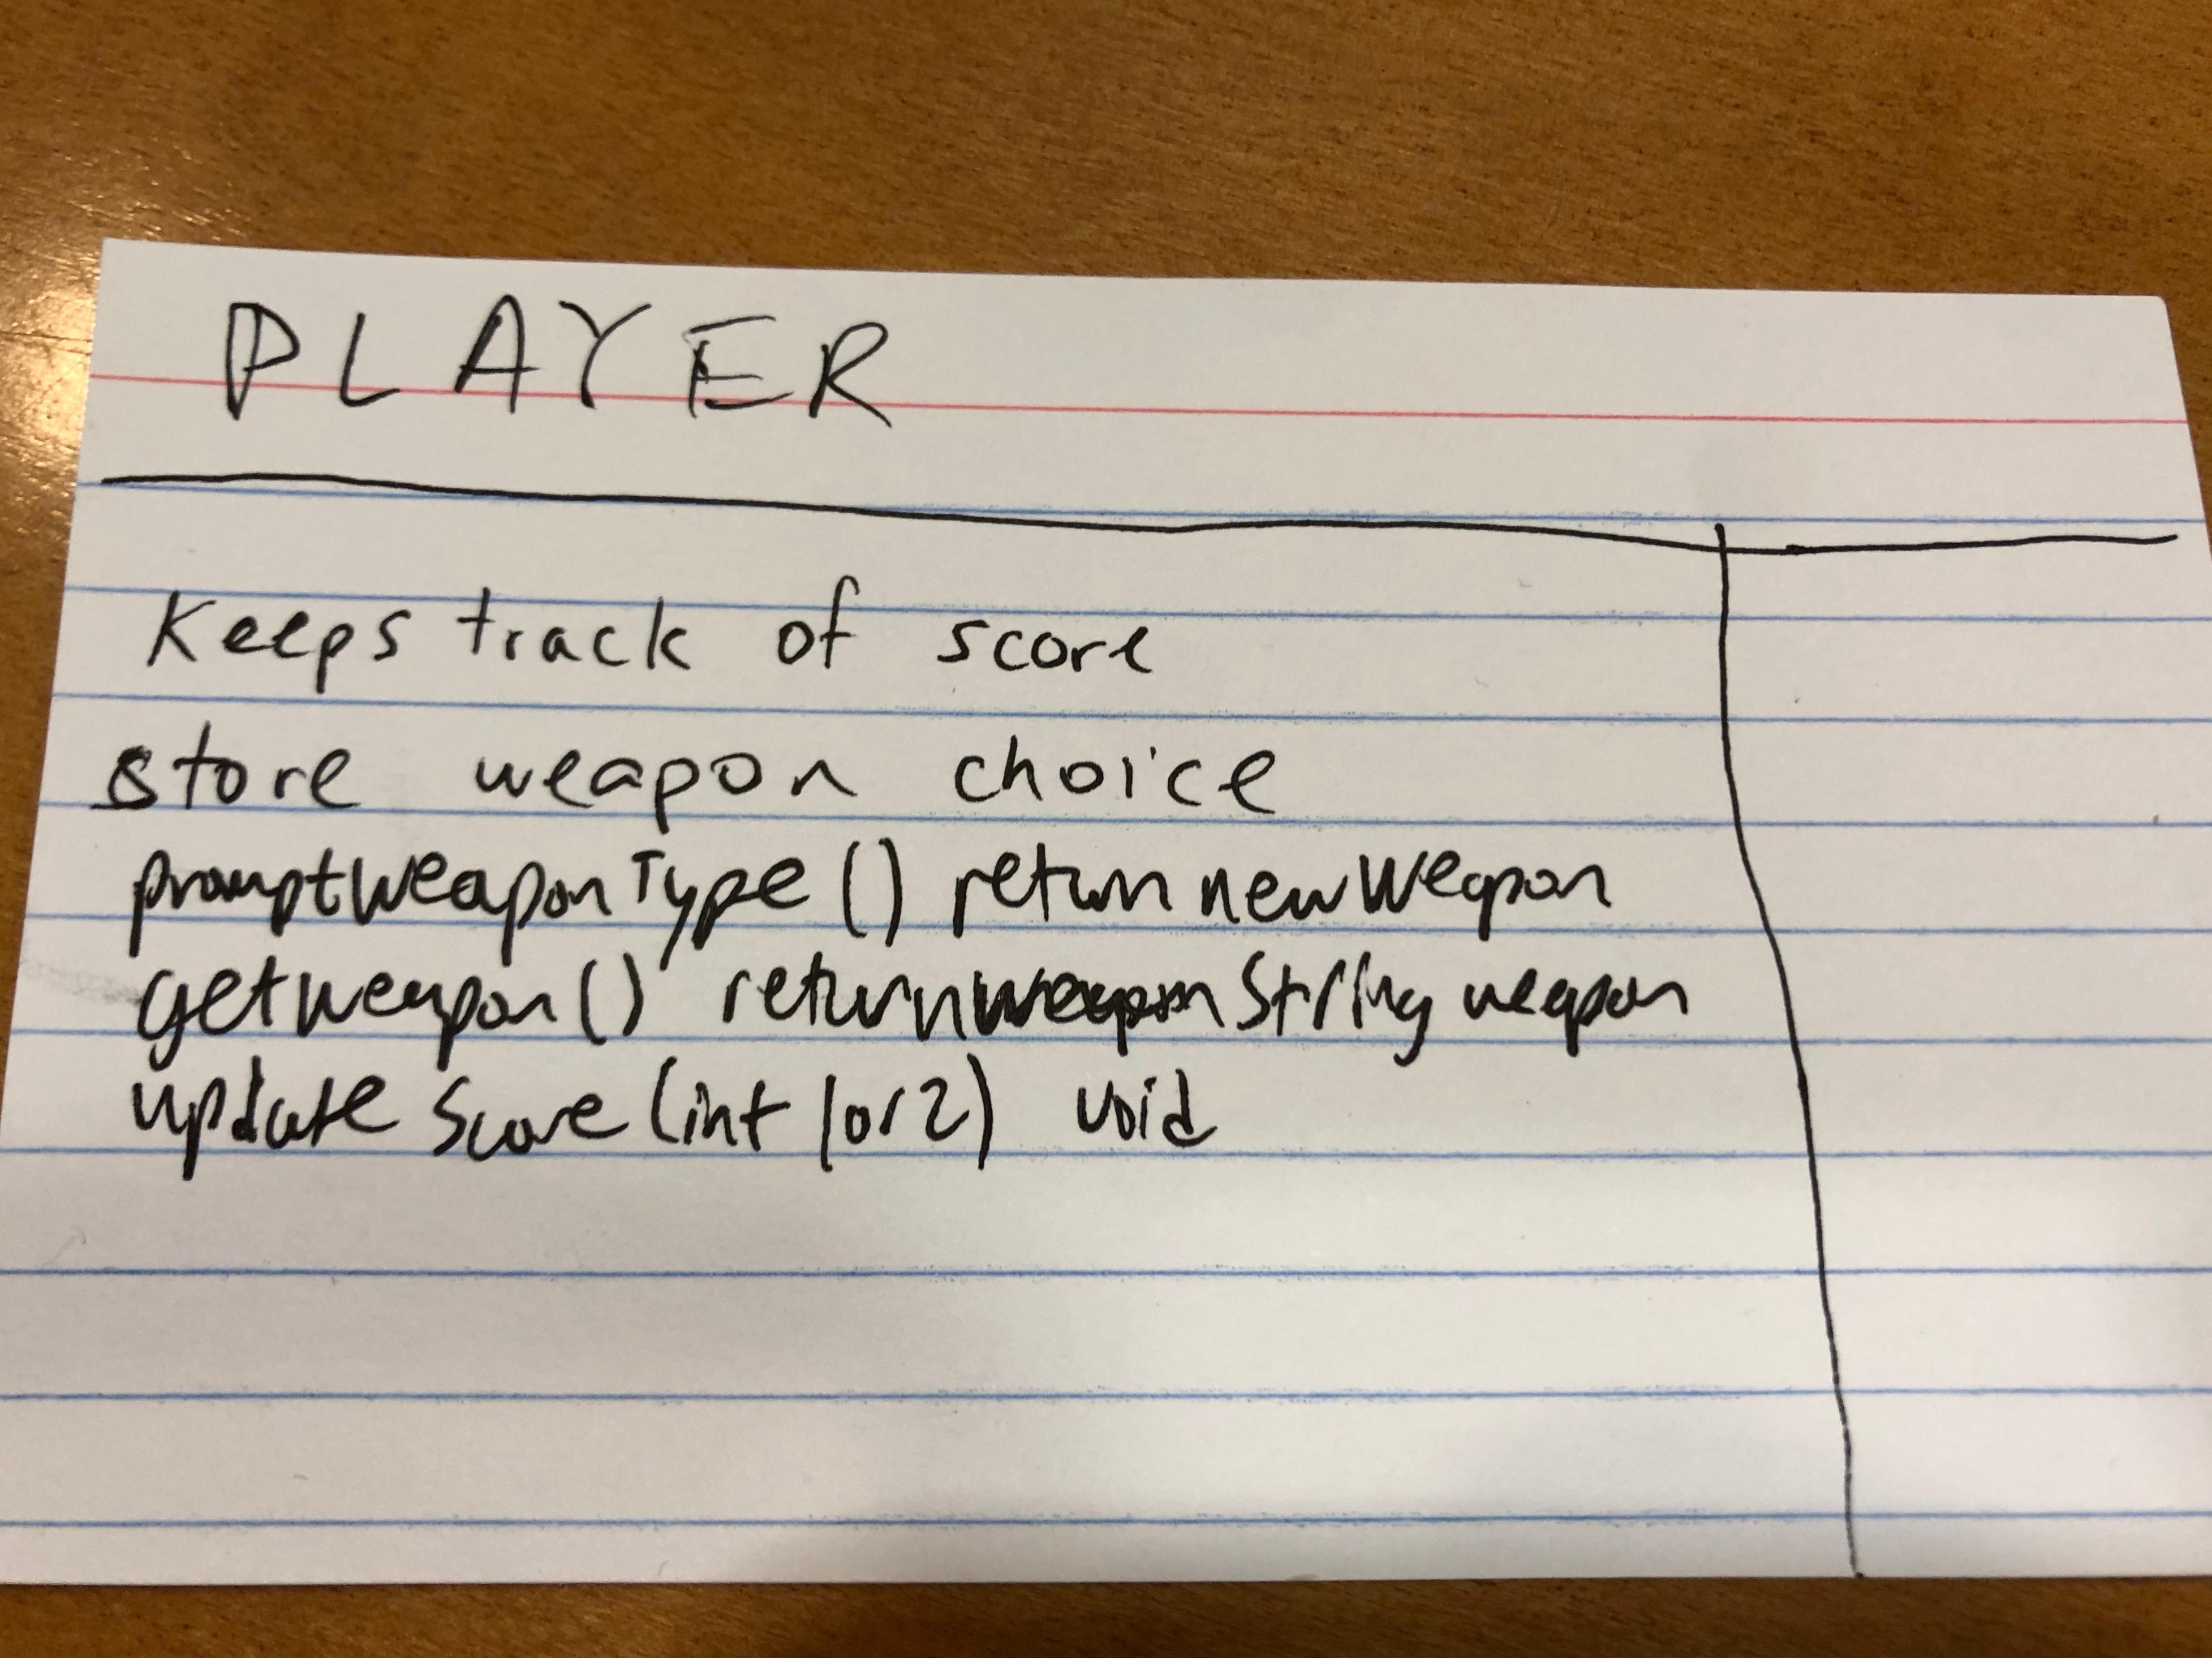 PLAYER
Keeps track of score
store weapon choice
promptWeaponType() return new Weapon
getweapon() return String weapon
update Score (int 1 or 2) void